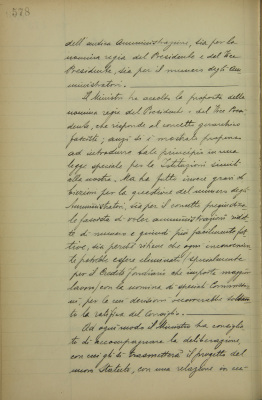 578
dell'antica Amministrazione, sia per la
nomina regia del Presidente e del Vice
Presidente, sia per il numero degli Am
ministratori.
Il Ministro ha accolto la proposta della
nomina regia del Presidente e del Vice Presi
dente, che risponde al concetto gerarchico
fascista; anzi si è mostrato propenso
ad introdurre tale principio in una
legge speciale per le Istituzioni simili
alla nostra. Ma ha fatto invece gravi o
biezioni per la questione del numero degli
Amministratori, sia per il concetto
fascista di voler amministrazioni ridot
te di numero e quindi più facilmente fat
tive, sia perché ritiene che ogni inconveniente
potrebbe essere eliminato (specialmente
per il Credito fondiario che importa maggior
lavoro) con la nomina di speciali Commissio
ni, per le cui decisioni occorrerebbe soltan
to la ratifica del Consiglio.
Ad ogni modo il Ministro ha consiglia
to di accompagnare la deliberazione,
con cui gli si trasmetterà il progetto del
nuovo Statuto, con una relazione in cui